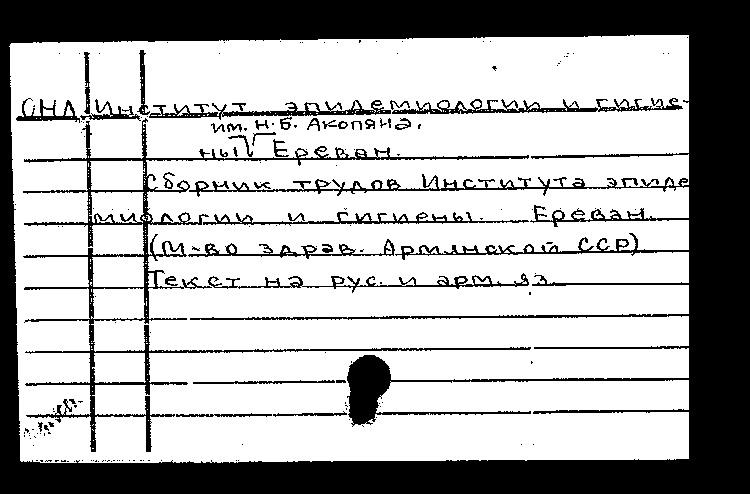 СНЛ Институт эпидемиологии и гигие-
им. Н.Б. Акопяна.
ны√ Ереван.
Сборник трудов Института эпиде
миологии и гигиены. Ереван.
(М-во здрав. Армянской ССР)
Текст на рус. и арм. яз.